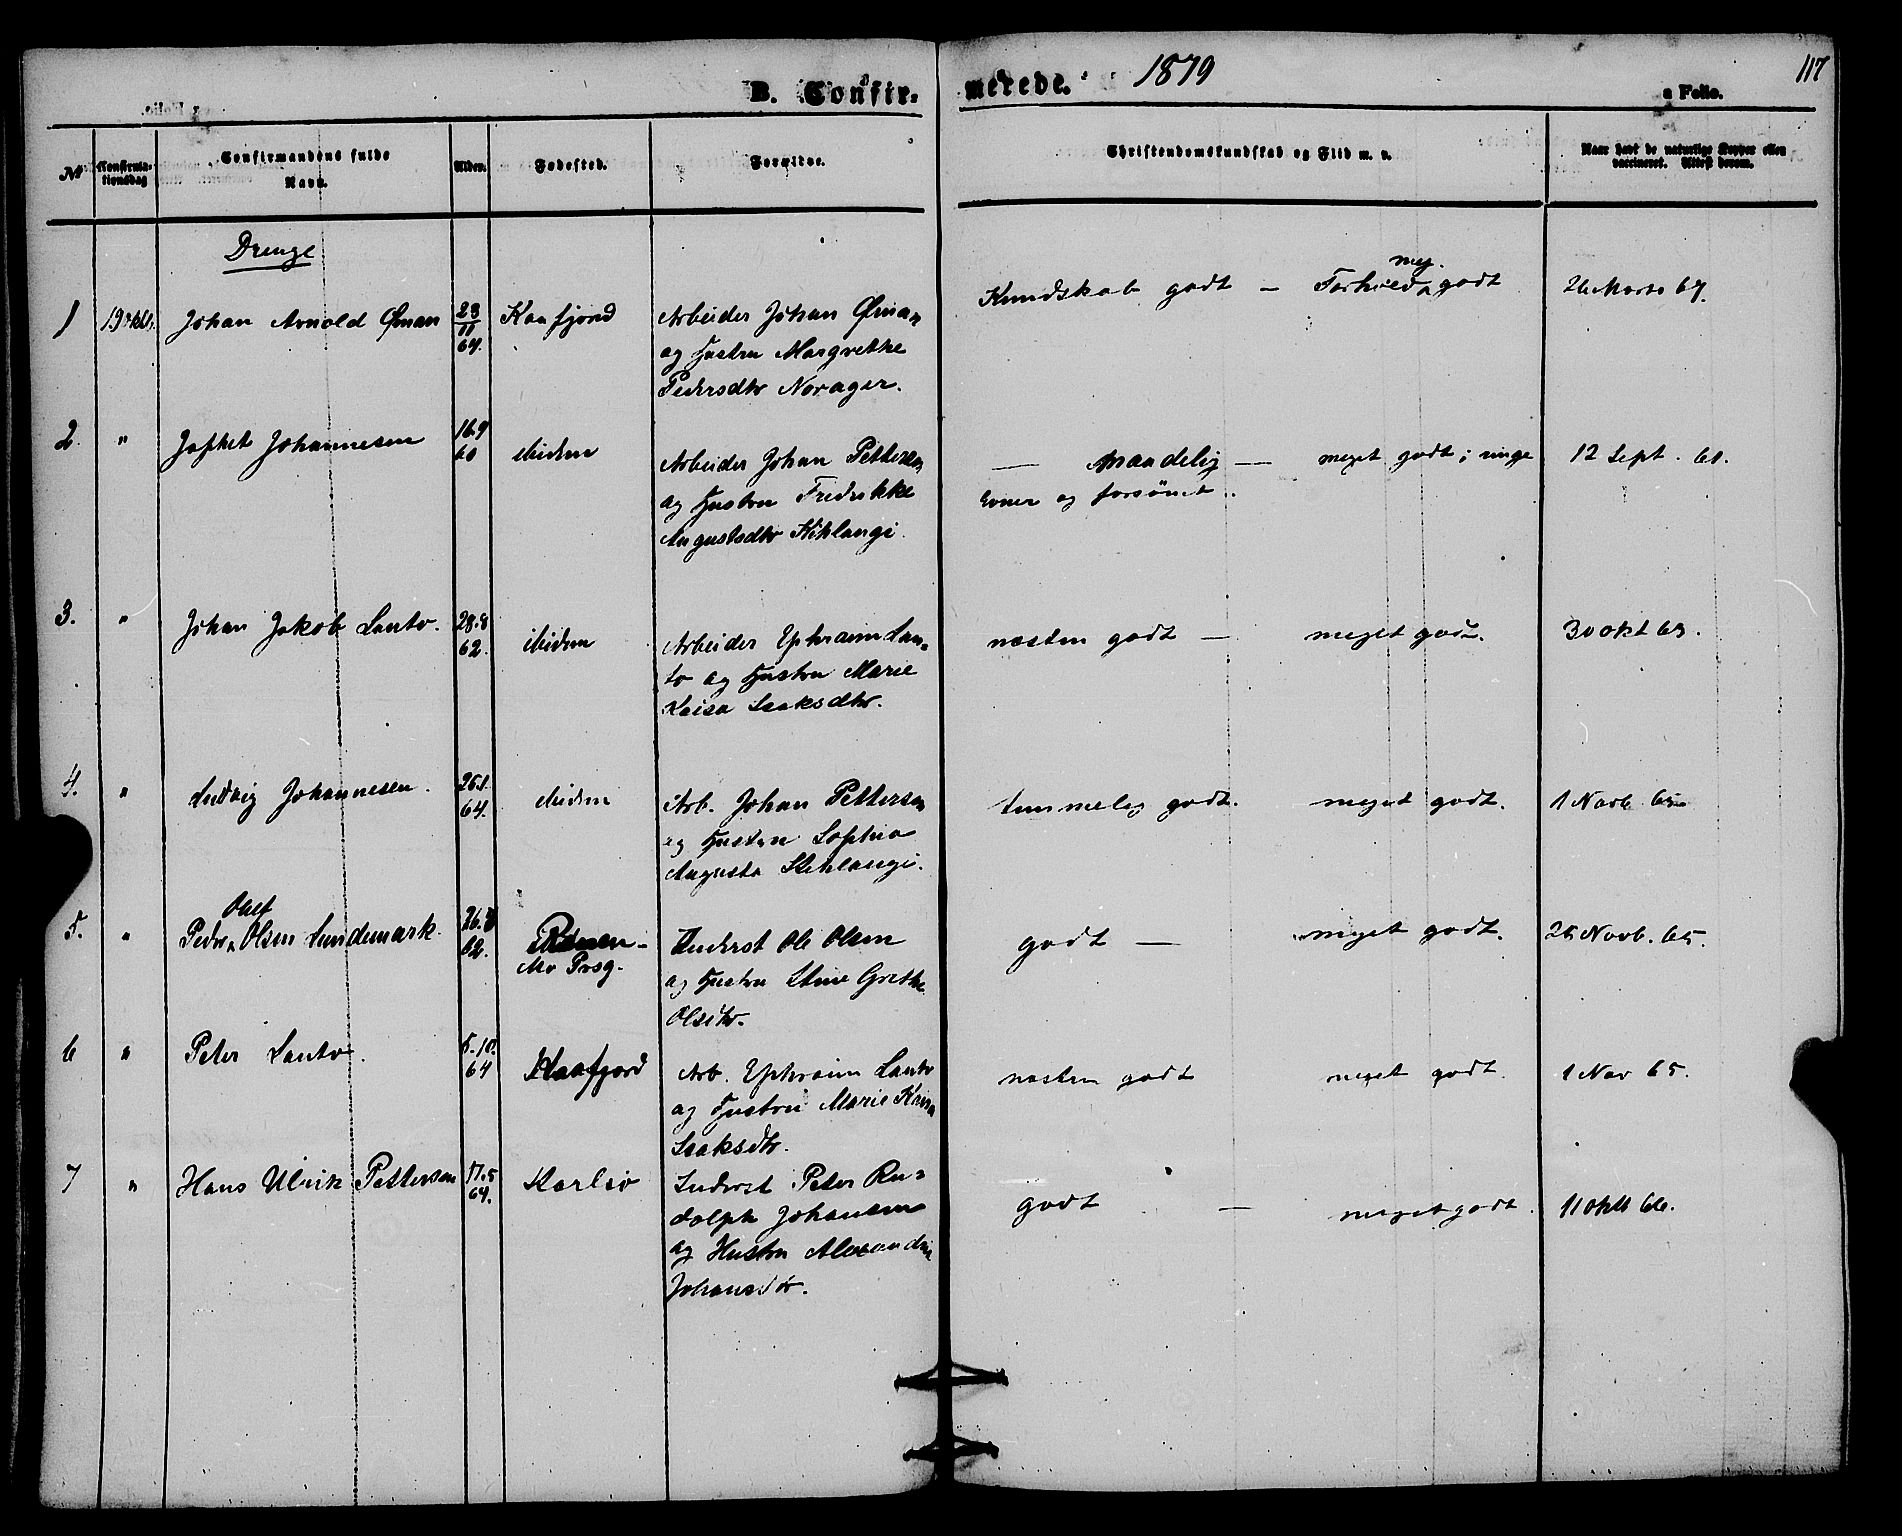 B. Confirmerede. 1879
a Folio. 117
No Confirmationsdag Confirmandens fulde Navn. Alder. Fødested. Forældre. Christendomskundskab og Flid m. v. Naar havt de naturlige Kopper eller vaccineret. Attest derom.
Drenge
1 Johan Arnold Øman 23/11 64. Kaafjord Arbeider Johan Øman Kundskab godt — Forhold meg. godt 26 Marts 67.
og Hustru Margrethe
Pedersdtr Norager.
2. " Jafhet Johannesen 16.9 60 ibidem Arbeider Johan Pettersen — maadelig — meget godt; ringe 12 Sept. 61.
og Hustru Fredrikke Evner og forsømt.
Augustsdtr Kihlangi.
3. " Johan Jakob Lanto. 28.8 62. ibidem Arbeider Ephraim Lan- næsten godt — meget godt. 30 okt 63.
to og Hustru Marie
Kaisa Isaksdtr.
4. " Ludvig Johannesen. 26.1. 64. ibidem Arb. Johan Pettersen temmelig godt. meget godt. 1 Novb. 65
og Hustru Sophia
Augusta Kihlangi.
5. " Peder Oluf Olsen Lundemark. 62. Inderst Ole Olsen godt — meget godt. 25 Novb. 65.
Mo Prsg. og Hustru Stine Grethe
Olsdtr.
6 " Peter Lanto. 5.10. 64 Kaafjord Arb. Ephraim Lanto næsten godt meget godt. 1 Nov 65.
og Hustru Marie Kaisa
Isaksdtr.
7 " Hans Ulrik Pettersen 17.5 64. Karlsø Inderst Peter Ru- godt — meget godt. 11 Okt 66.
dolph Johansen
og Hustru Alexandrin
Johansdtr.